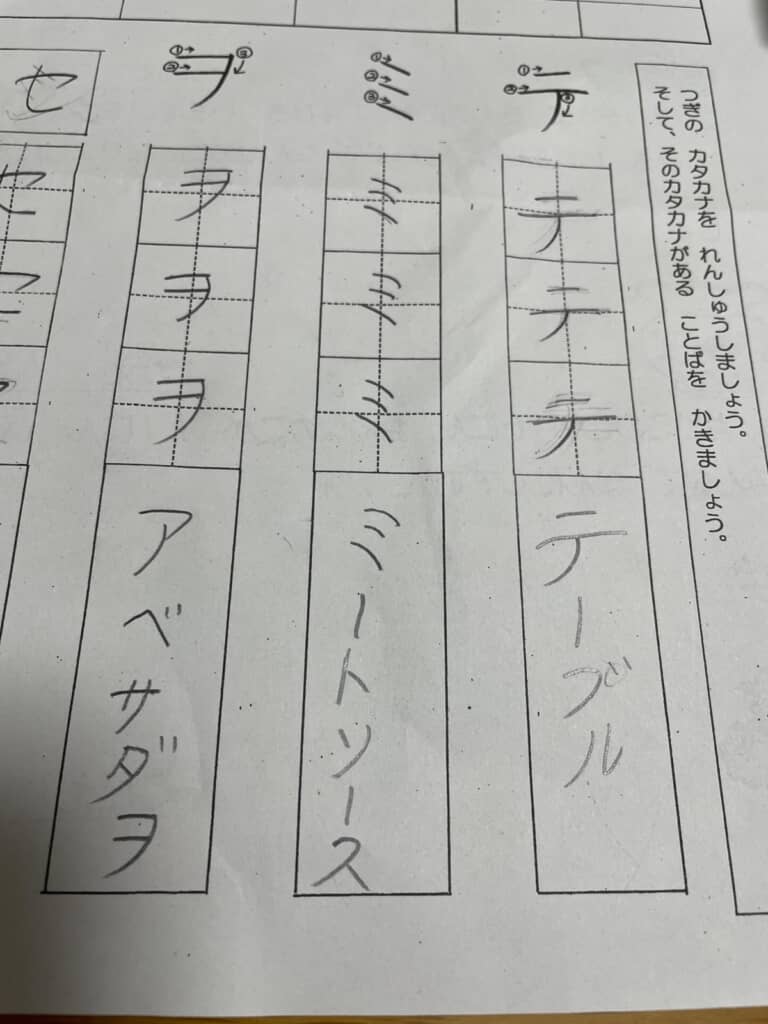 つぎの カタカナを れんしゅうしましょう。
そして、そのカタカナがある ことばを かきましょう。
①→
②→
③
テ
テ
テ
テ
テーブル
①→
②→
③→
ミ
ミ
ミ
ミ
ミートソース
①→
②→
③
ヲ
ヲ
ヲ
ヲ
アベサダヲ
セ
セ